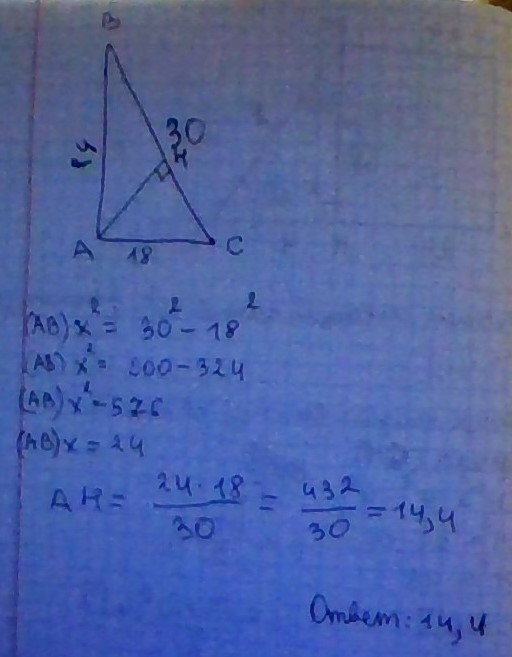 B
24
30
H
A
18
C
(AB) x² = 30² - 18²
(AB) x² = 900 - 324
(AB) x² = 576
(AB) x = 24
AH = 24·18/30 = 432/30 = 14,4
Ответ: 14,4